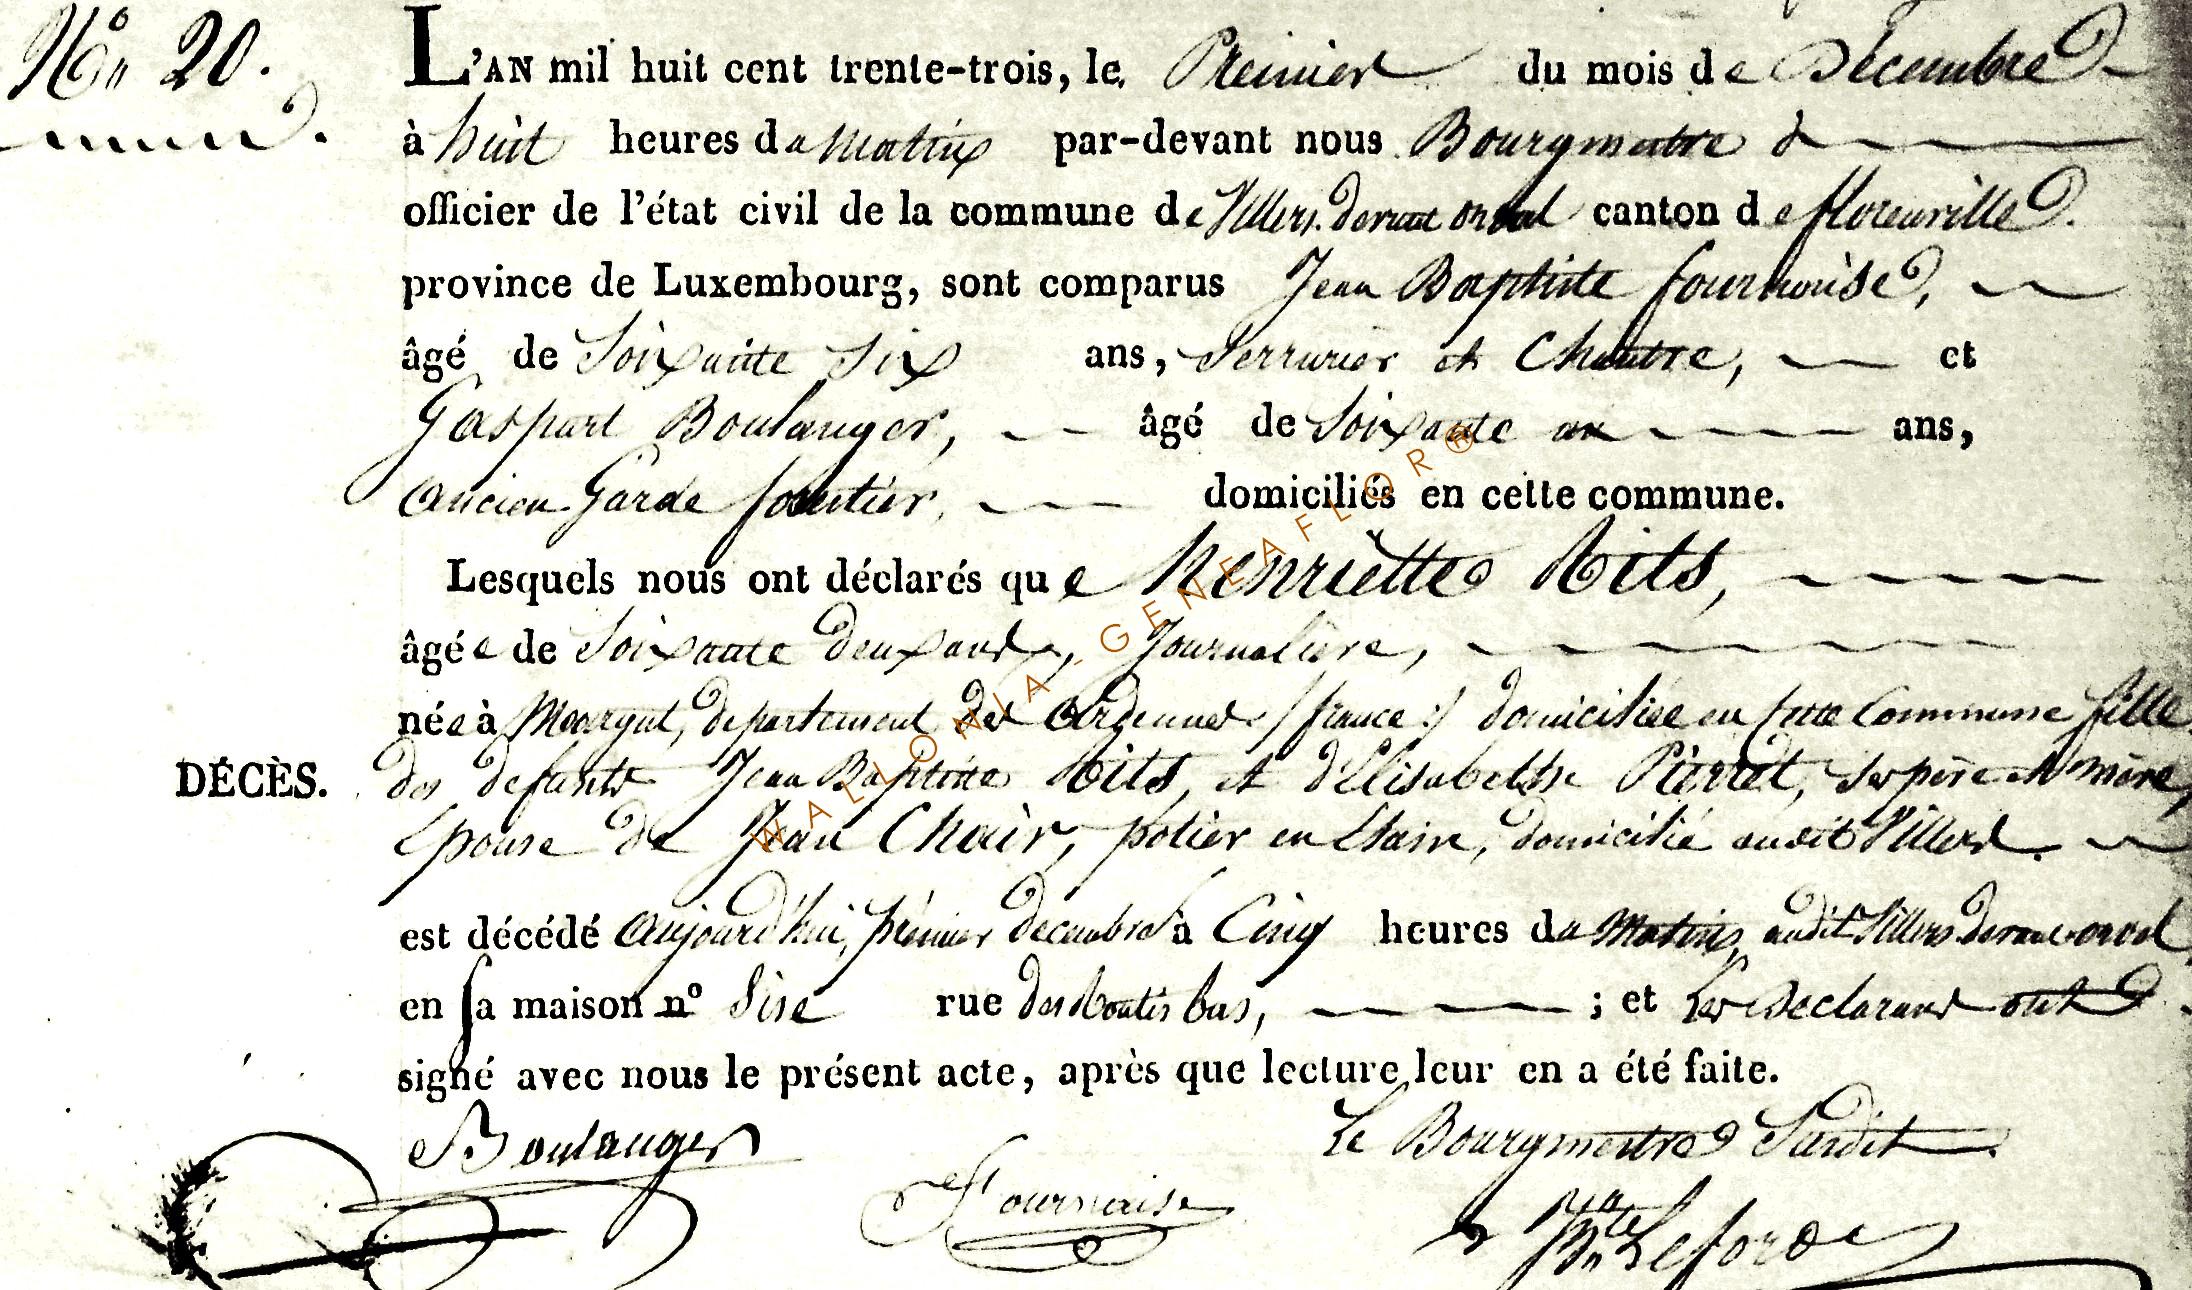 N.º 20.
L'AN mil huit cent trente-trois, le Premier du mois de Décembre
à huit heures du Matin par-devant nous Bourgmestre &
officier de l'état civil de la commune de Villers devant orval canton de florenville
province de Luxembourg, sont comparus Jean Baptiste fournaise,
âgé de Soixante six ans, Serrurier et Chantre, et
Gaspart Boulanger, âgé de Soixante un ans,
ancien Garde forestier, domiciliés en cette commune.
Lesquels nous ont déclarés que henriette tits,
âgée de Soixante deux ans, Journalière,
née à Mourgut, département des Ardennes /france:/ domiciliée en cette Commune fille
DÉCÈS.
des defunts Jean Baptiste tits, et d'Elisabethe Pierret, Ses père et mère,
Epouse de Jean Choir, potier en Etain, domicilié audit Villers.
est décédé aujourd'hui, prémier decembre à Cinq heures du Matin, audit Villers devant orval,
en Sa maison nº Sise rue des bas, ; et les Declarans ont
signé avec nous le présent acte, après que lecture leur en a été faite.
Boulanger
Fournaise
Le Bourgmestre Susdit
WALLONIA-GENEAFLOR®